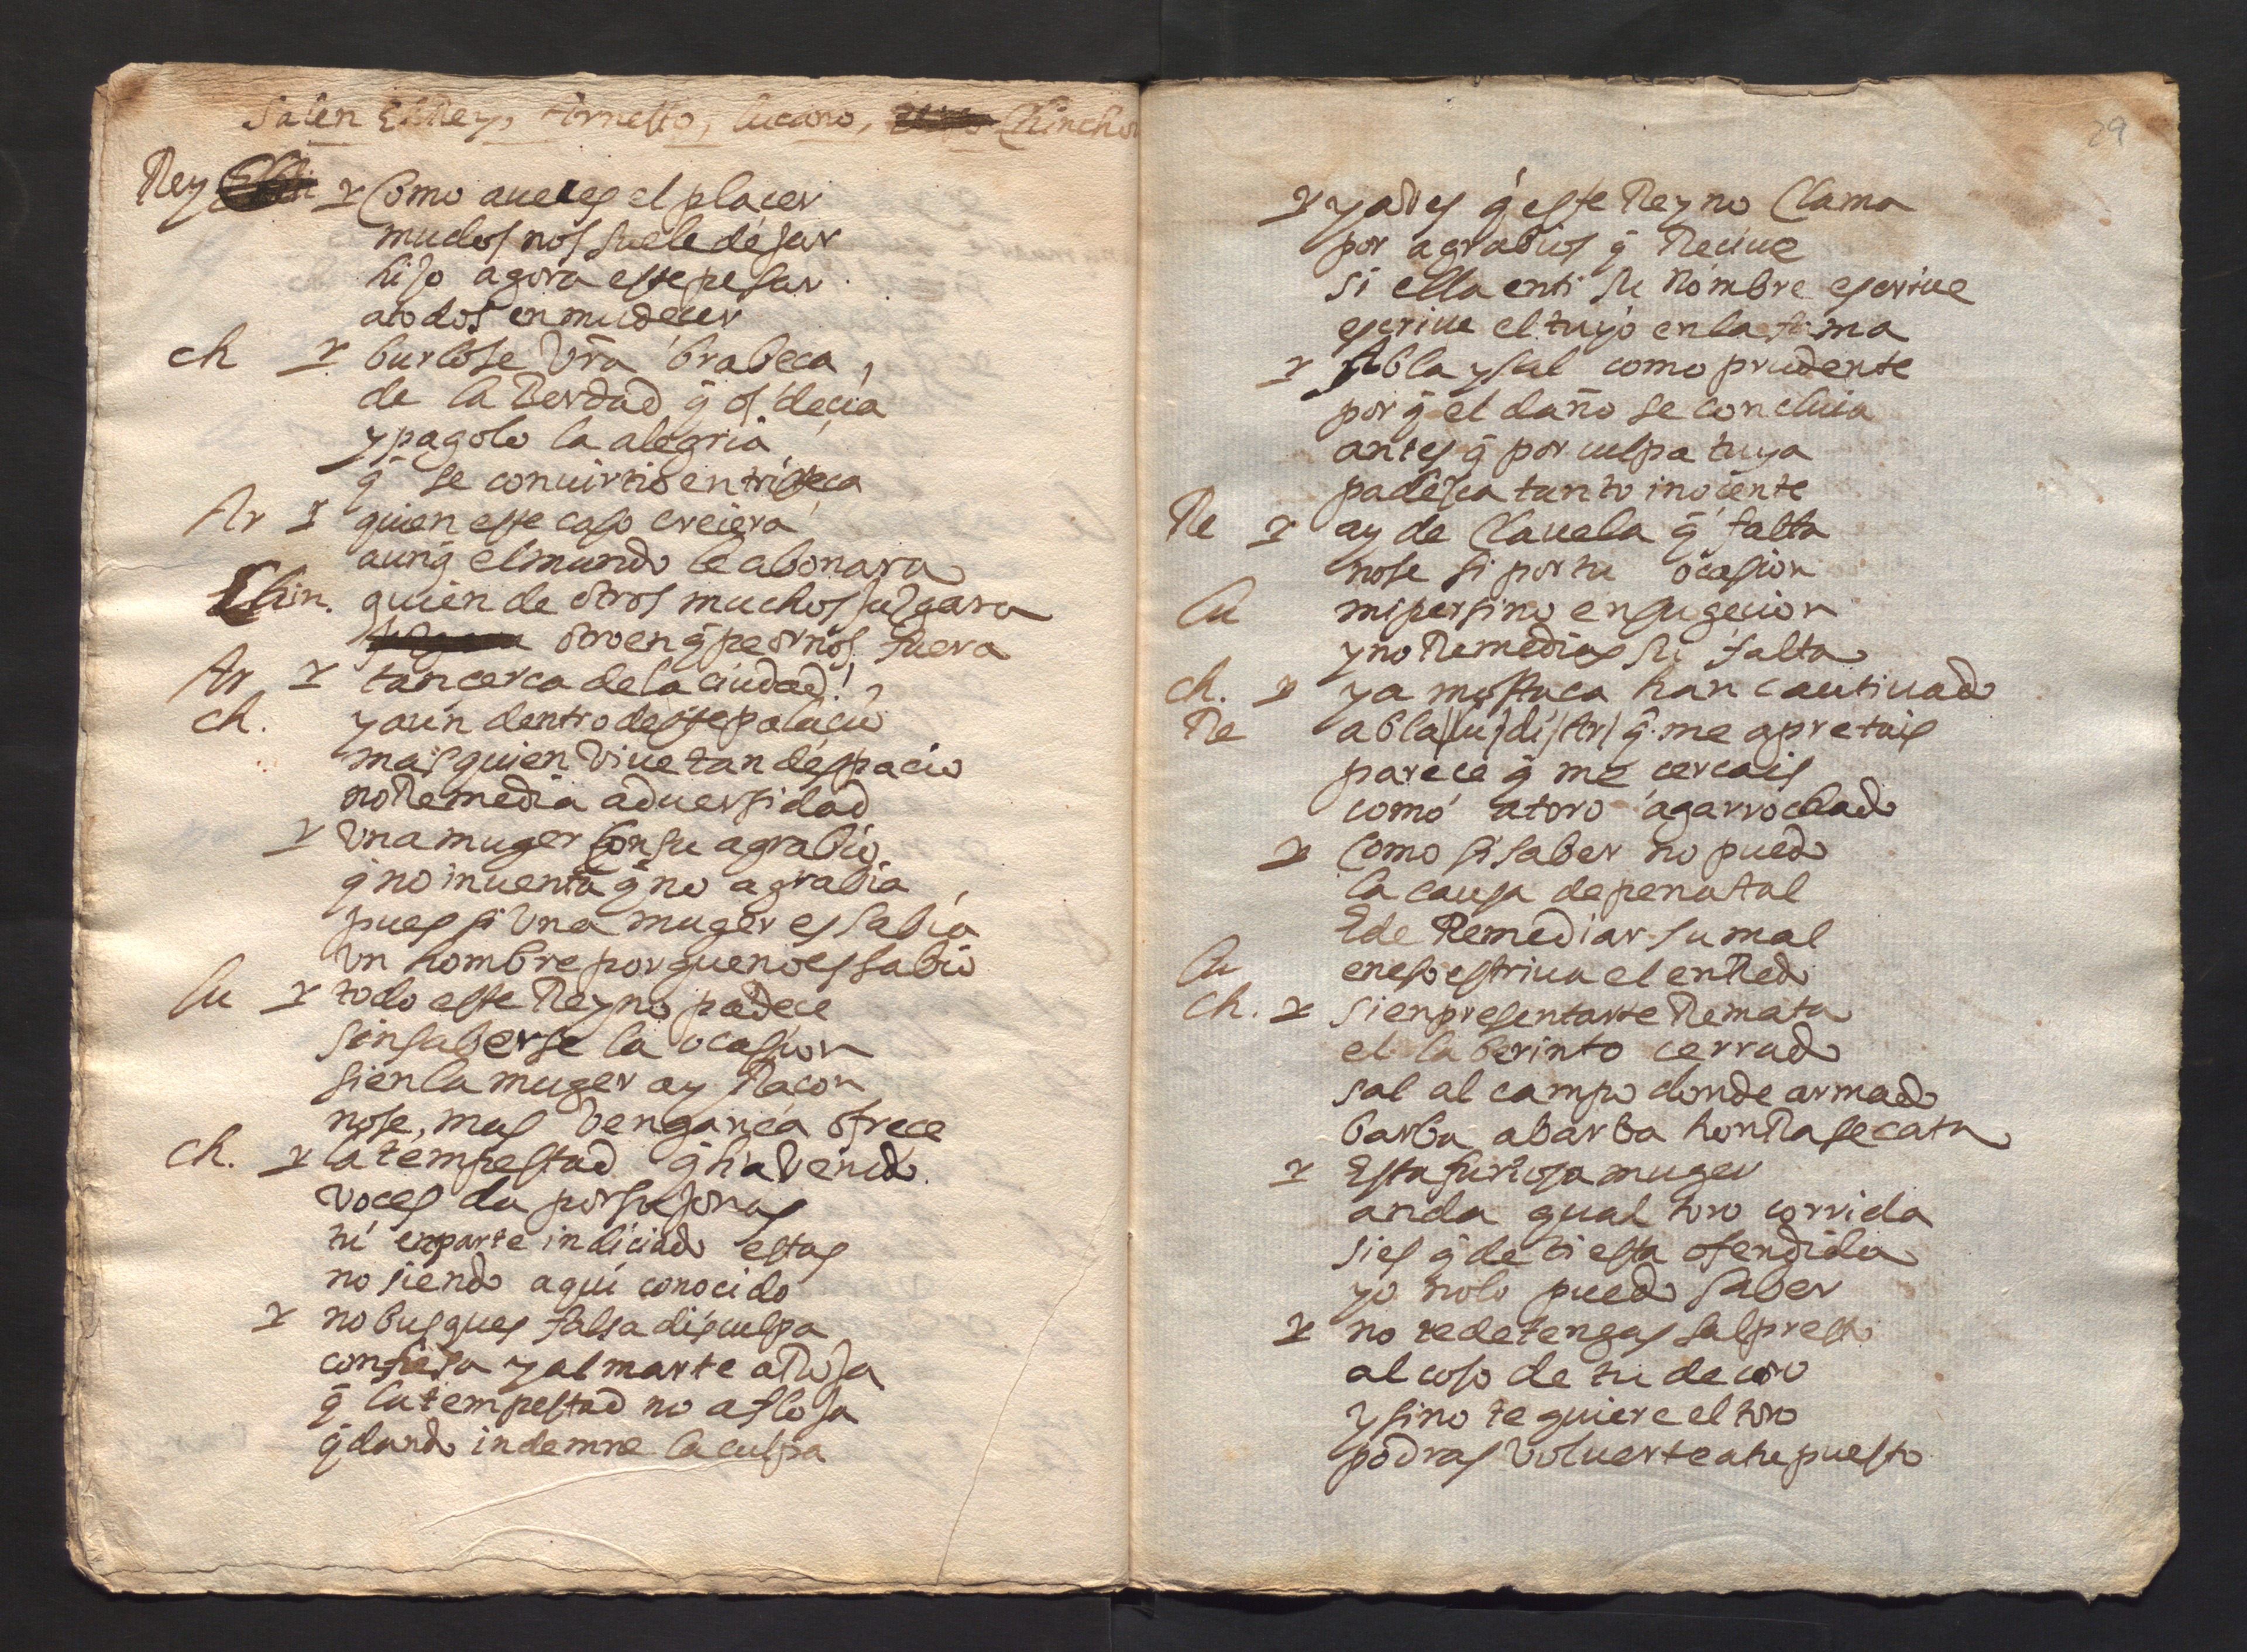 Salen El Rey, Arnesto, lucano, Chinchon
Rey Como aueces el placer
mudos nos suele dejar
hijo agora este pesar
a todos enmudecer
ch burlose vr̃a brabeça
de la berdad q̃ os decia
y pagolo la alegria
q̃ se conuirtio en tristeça
Ar quien este caso creiera
aunq̃ el mundo le abonara
Chin. quien de otros muchos juzgara
otro en q̃ peor nos fuera
Ar tan cerca de la ciudad!
ch. y aun dentro deste palacio
mas quien viue tan despacio
no Remedia aduersidad
Vna muger con su agrabio
q̃ no inuenta q̃ no agrabia
pues si vna muger es sabia
vn hombre porque no es sabio
lu todo este Reyno padece
sin saberse la ocasion
si en la muger ay Raçon
nose, mas bengança ofrece
ch. la tempestad q̃ ha venido
voces da por su jonas
tu en parte indiciado estas
no siendo aqui conocido
no busques falsa disculpa
confiesa y al mar te aRoja
q̃ la tempestad no afloja
q̃dando indemne la culpa
29
y a dies q̃ este Reyno llama
por agrabios q̃ Reciue
si ella en ti su nombre escriue
escriue el tuyo en la fama
Abla y sal como prudente
por q̃ el daño se concluia
antes q̃ por culpa tuya
padezca tanto inocente
Re ay de Clauela q̃ falta
nose si por tu ocasion
lu mi persino en sugecion
y no Remedias su falta
ch. ya mostaca han cautiuado
Re abla/lu/di/Ar/ q̃ me apretais
parece q̃ me cercais
como a toro agarrochado
Como si saber no puedo
la causa de pena tal
E de Remediar su mal
lu en eso estriua el enRedo
ch. si en presentarte Remata
el laberinto cerrado
sal al campo donde armado
barba a barba honRa se cata
Esta furiosa muger
anda qual toro corrida
si es q̃ de ti esta ofendida
yo nolo puedo saber
no te detengas sal presto
al coso de tu decoro
y sino te quiere el toro
podras voluerte a tu puesto